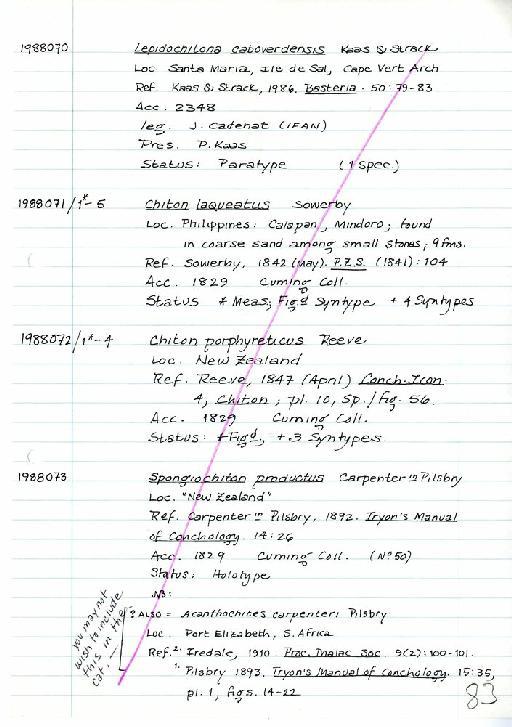 1988070 Lepidochitona caboverdensis Kaas & Strack
Loc. Santa Maria, Ile de Sal, Cape Vert Arch
Ref. Kaas & Strack, 1986. Basteria. 50: 79-83
Acc. 2348
leg. J. Cadenat (IFAN)
Pres. P. Kaas
Status: Paratype (1 spec.)
1988071/1*-5 Chiton laqueatus Sowerby
Loc. Philippines: Calapan, Mindoro; found
in coarse sand among small stones; 9 fms.
Ref. Sowerby, 1842 (May). P.Z.S. (1841): 104
Acc. 1829 Cuming Coll.
Status * Meas; Figd Syntype + 4 Syntypes
1988072/1*-4 Chiton porphyreticus Reeve
Loc. New Zealand
Ref. Reeve, 1847 (April) Conch. Icon.
4, Chiton; pl. 10, Sp./fig. 56.
Acc. 1829 Cuming Coll.
Status: * Figd, + 3 Syntypes
1988073 Spongiochiton productus Carpenter in Pilsbry
Loc. "New Zealand"
Ref. Carpenter in Pilsbry, 1892. Tryon's Manual
of Conchology. 14: 26
Acc. 1829 Cuming Coll. (No 50)
Status: Holotype
NB:
? ALSO = Acanthochites carpenteri Pilsbry
Loc. Port Elizabeth, S. Africa
Ref. 2. Iredale, 1910. Proc. malac. Soc. 9(2): 100-101.
1. Pilsbry 1893. Tryon's Manual of Conchology. 15: 35,
pl. 1, figs. 14-22
you may not
wish to include
this in the
cat.
83